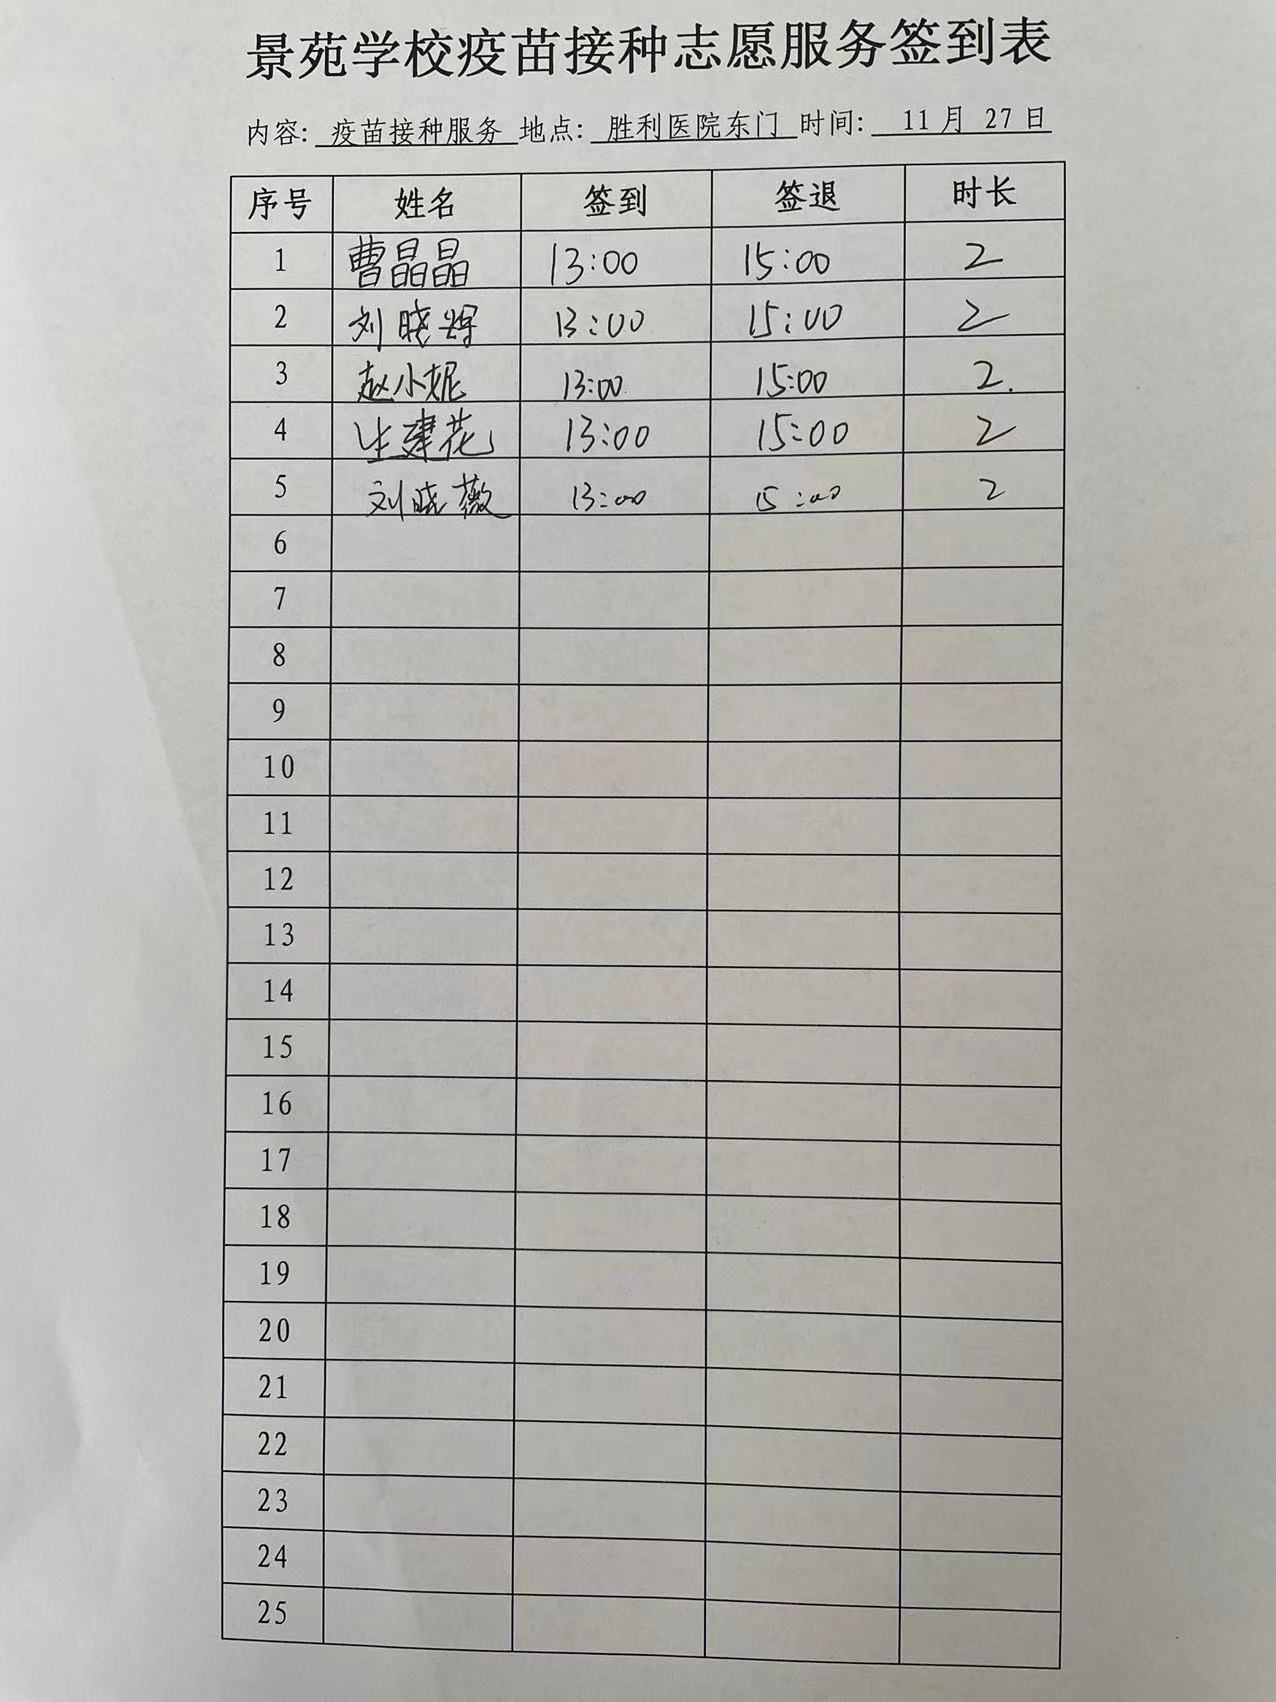 景苑学校疫苗接种志愿服务签到表
内容: 疫苗接种服务 地点: 胜利医院东门 时间: 11月 27日
序号 姓名 签到 签退 时长
1 曹晶晶 13:00 15:00 2
2 刘晓辉 13:00 15:00 2
3 赵小妮 13:00 15:00 2.
4 生建花 13:00 15:00 2
5 刘晓薇 13:00 15:00 2
6
7
8
9
10
11
12
13
14
15
16
17
18
19
20
21
22
23
24
25